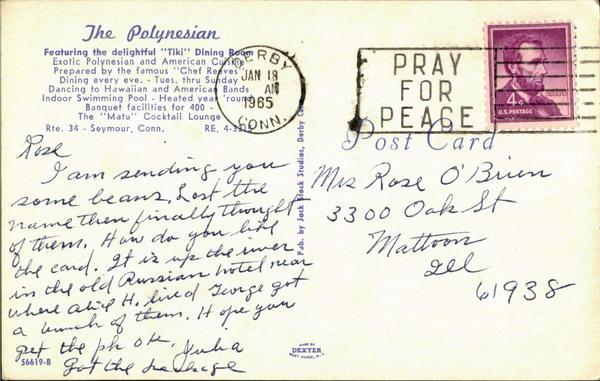 The Polynesian
Featuring the delightful "Tiki" Dining Room
Exotic Polynesian and American Cuisine
Prepared by the famous "Chef Reeves"
Dining every eve. - Tues. thru Sunday
Dancing to Hawaiian and American Bands
Indoor Swimming Pool - Heated year 'round
Banquet facilities for 400 -
The "Matu" Cocktail Lounge
Rte. 34 - Seymour, Conn. RE. 4-33
DERBY
JAN 18
AM
1965
CONN.
PRAY
FOR
PEACE
4¢
U.S. POSTAGE
Post Card
Rose
I am sending you
some beans, Lost the
name then finally thought
of them. How do you like
the card. It is up the river
in the old Russian hotel near
where H. lived George got
a bunch of them. Hope you
get the pk OK. Julia
Got the package
Mrs Rose O'Brien
3300 Oak St
Mattoon
Ill
61938
Pub. by Jack Stock Studios, Derby, Co
56619-B
MADE BY
DEXTER
WEST NYACK, N.Y.